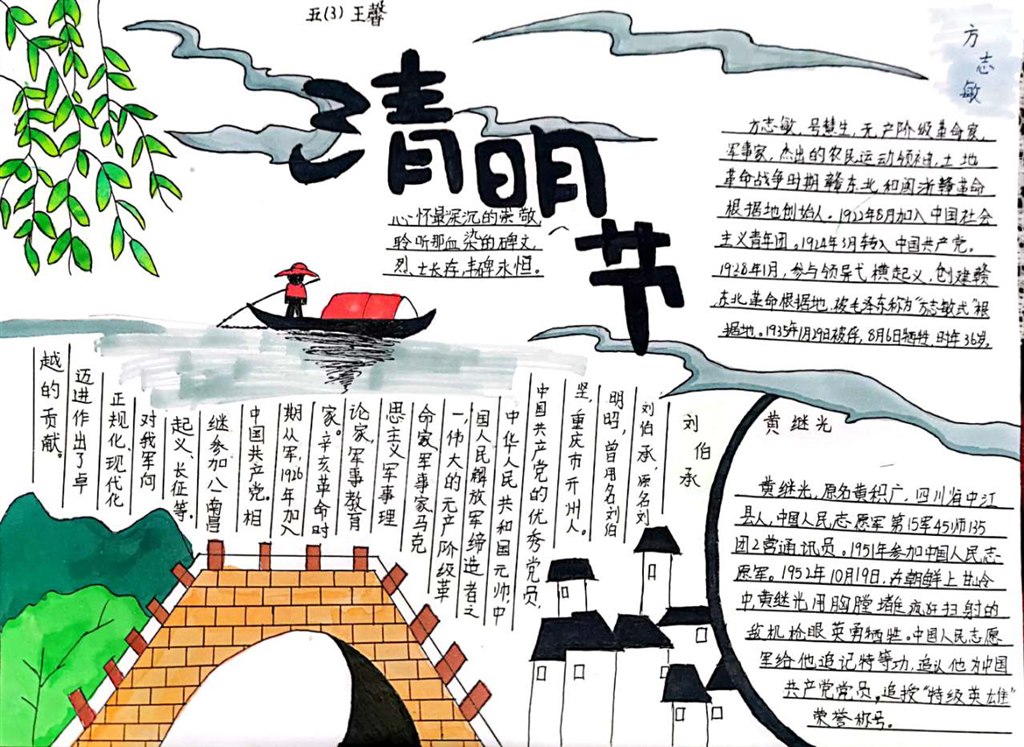 五(3) 王馨
清明节
心怀最深沉的崇敬，
聆听那血染的碑文，
烈士长存，丰碑永恒。
方志敏
方志敏，号慧生，无产阶级革命家，
军事家，杰出的农民运动领袖，土地
革命战争时期赣东北和闽浙赣革命
根据地创始人。1922年8月加入中国社会
主义青年团。1924年3月转入中国共产党。
1928年1月，参与领导弋横起义，创建赣
东北革命根据地，被毛泽东称为“方志敏式”根
据地。1935年1月29日被俘，8月6日牺牲，时年36岁。
刘伯承
刘伯承，原名刘
明昭，曾用名刘伯
坚，重庆市开州人。
中国共产党的优秀党员，
中华人民共和国元帅，中
国人民解放军缔造者之
一，伟大的无产阶级革
命家、军事家、马克
思主义军事理
论家，军事教育
家。辛亥革命时
期从军，1926年加入
中国共产党。相
继参加八一南昌
起义、长征等。
对我军向
正规化、现代化
迈进作出了卓
越的贡献。
黄继光
黄继光，原名黄积广，四川省中江
县人，中国人民志愿军第15军45师135
团2营通讯员。1951年参加中国人民志
愿军。1952年10月19日，在朝鲜上甘岭
中，黄继光用胸膛堵住疯狂扫射的
敌机枪眼英勇牺牲。中国人民志愿
军给他追记特等功，追认他为中国
共产党党员，追授“特级英雄”
荣誉称号。